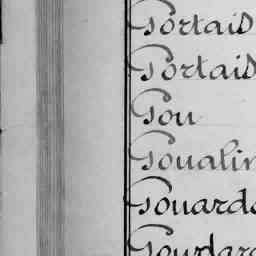 Sortais
Sortais
Sou
Soualin
Souard
Sourdar